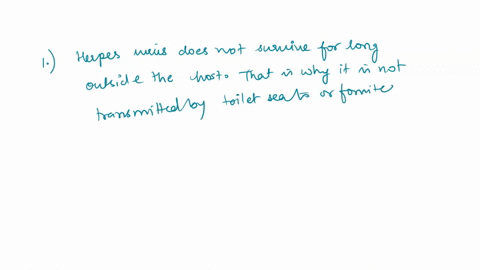 1.) Herpes virus does not survive for long
outside the host. That is why it is not
transmitted by toilet seats or fomite